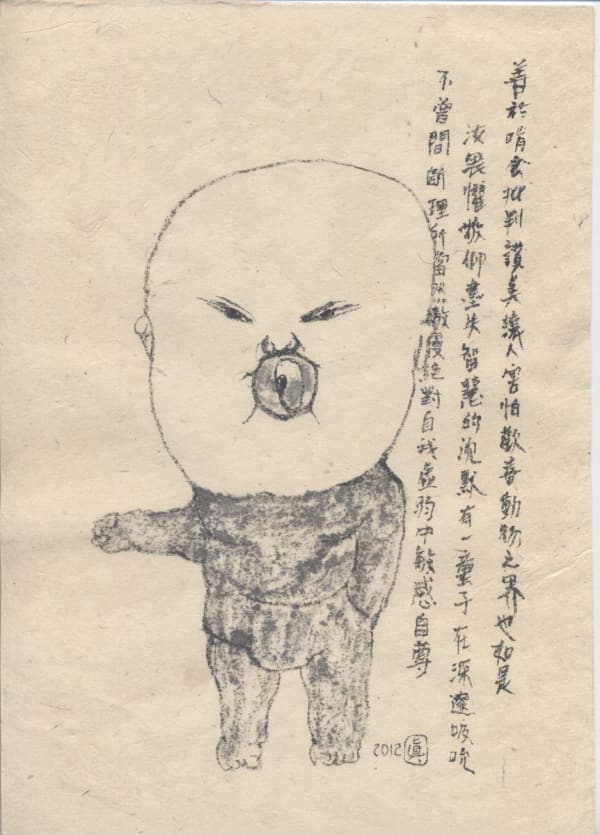 善於啃書批判讚美讓人害怕歡喜動物之界也如是
汝畏懼敬仰盡失智慧的沈默有一童子在深邃吸吮
不曾間斷理所當然傲慢絕對自我虛弱中敏感自尊
2012 真